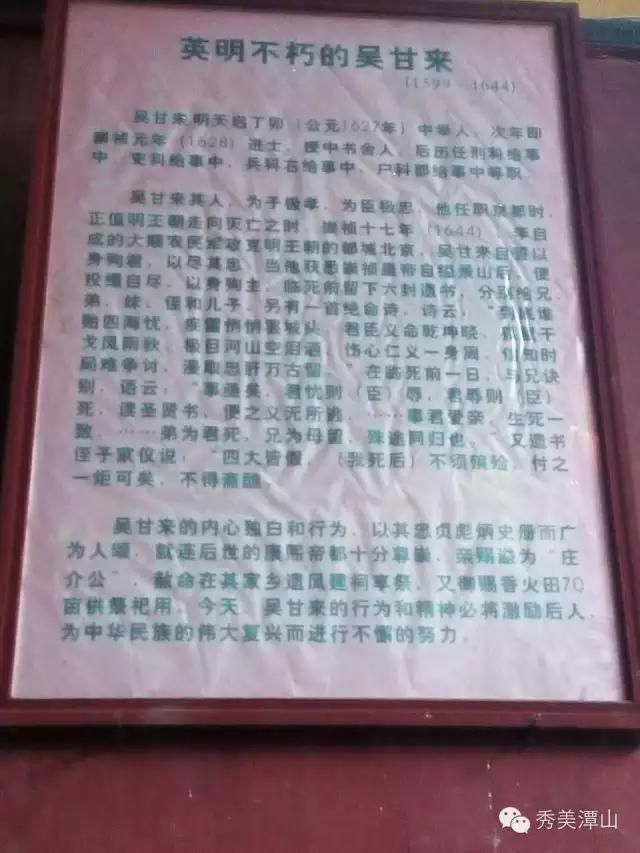 英明不朽的吴甘来
(1599-1644)
吴甘来明天启丁卯(公元1627年)中举人,次年即
崇祯元年(1628)进士,授中书舍人,后历任刑科给事
中、吏科给事中、兵科右给事中、户科都给事中等职。
吴甘来其人,为子极孝,为臣极忠,他任职京都时,
正值明王朝走向灭亡之时,崇祯十七年(1644),李自
成的大顺农民军攻克明王朝的都城北京,吴甘来自尝以
身殉君,以尽其忠,当他获悉崇祯皇帝自缢景山后,便
投缳自尽,以身殉主,临死前留下六封遗书,分别给兄、
弟、妹、侄和儿子,另有一首绝命诗,诗云,“到底谁
贻四海忧,疾雷悄悄害城头,君臣义命乾坤晓,
戈风雨秋,极目河山空泪洒,伤心仁义一身周,
局难争讨,漫取忠肝万古留 在临死前一日,与兄诀
别,语云:“事至矣,君忧则(臣)辱,君辱则(臣)
死,读圣贤书,便之义无所逃,……事君爱亲,生死一
致,……弟为君死,兄为母留,殊途同归也, 又遗书
侄子家仪说:“四大皆假,(我死后)不须殡殓,付之
一炬可矣,不得斋醮
吴甘来的内心独白和行为,以其忠贞彪炳史册而广
为人颂,就连后世的康熙帝都十分尊崇,亲赐谥为“庄
介公”,敕命在其家乡遗风建祠享祭,又御赐香火田70
亩供祭祀用,今天,吴甘来的行为和精神必将激励后人,
为中华民族的伟大复兴而进行不懈的努力。
秀美潭山